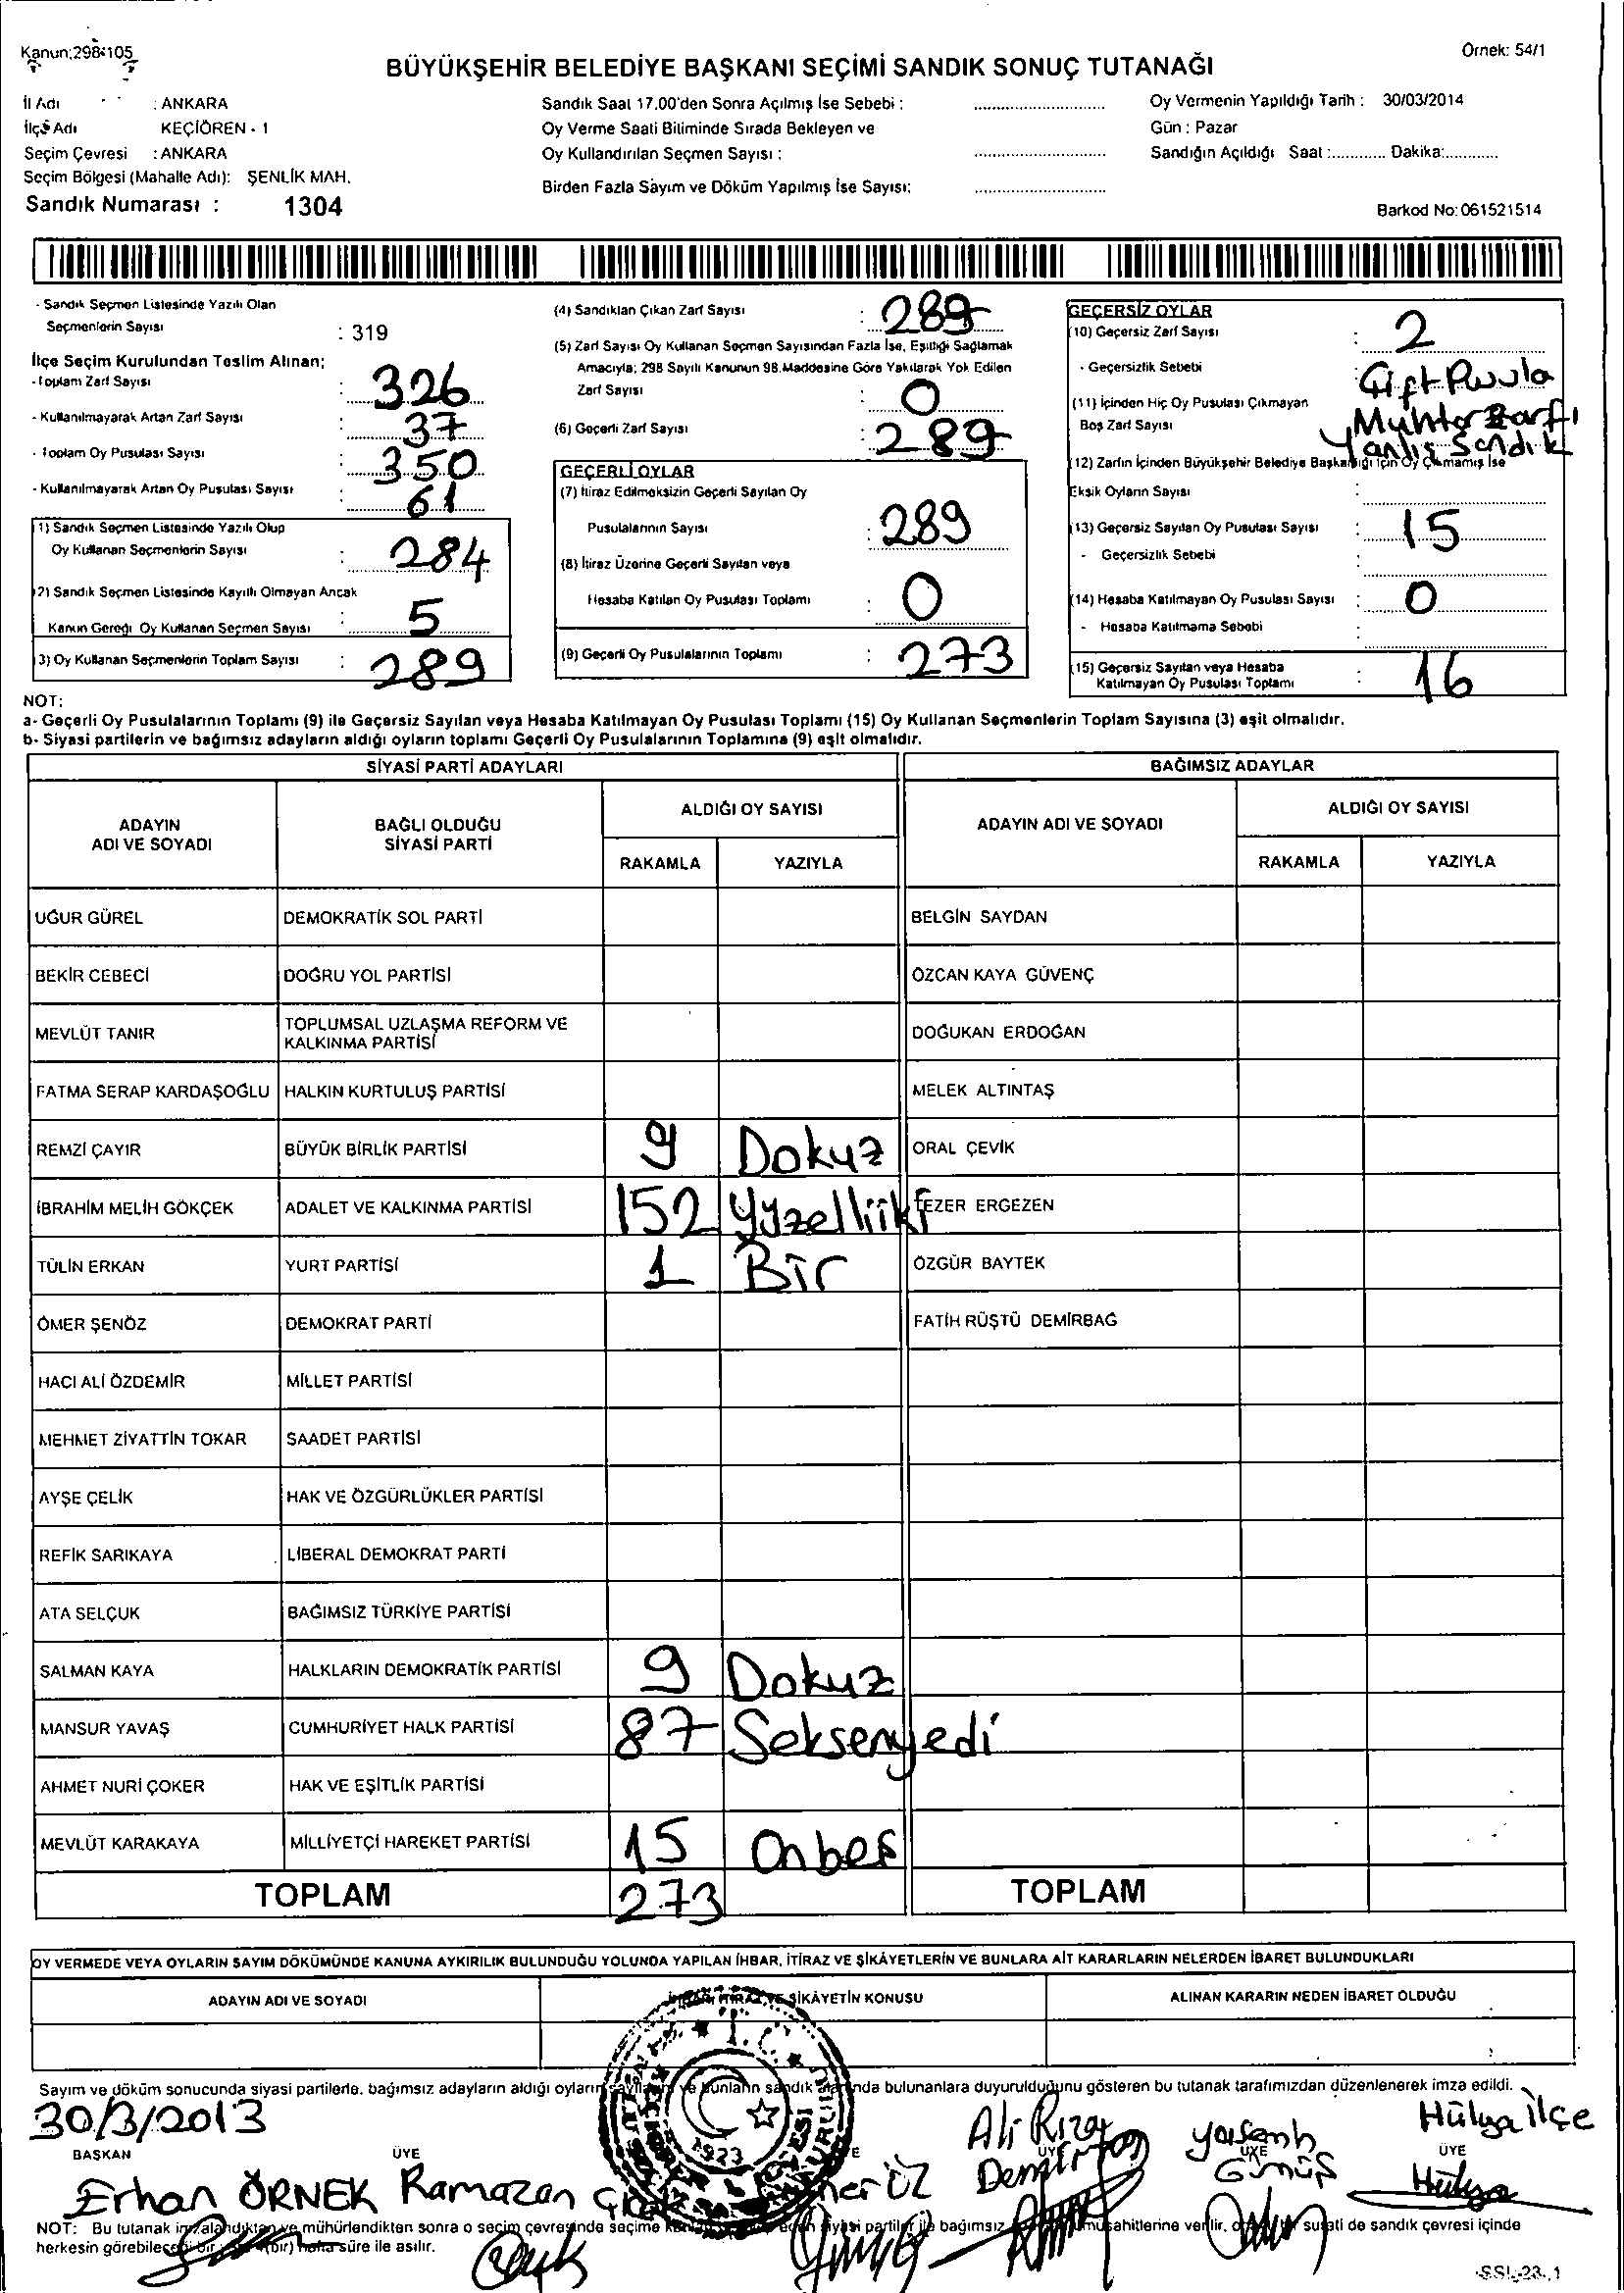 Kanun:298-105
Örnek: 54/1
BÜYÜKŞEHİR BELEDİYE BAŞKANI SEÇİMİ SANDIK SONUÇ TUTANAĞI
İl Adı : ANKARA
İlçe Adı KEÇİÖREN - 1
Seçim Çevresi : ANKARA
Seçim Bölgesi (Mahalle Adı): ŞENLİK MAH.
Sandık Numarası : 1304
Sandık Saat 17.00'den Sonra Açılmış İse Sebebi :
Oy Verme Saati Bitiminde Sırada Bekleyen ve
Oy Kullandırılan Seçmen Sayısı :
Birden Fazla Sayım ve Döküm Yapılmış İse Sayısı:
Oy Vermenin Yapıldığı Tarih : 30/03/2014
Gün : Pazar
Sandığın Açıldığı Saat :............ Dakika:............
Barkod No: 061521514
- Sandık Seçmen Listesinde Yazılı Olan
Seçmenlerin Sayısı : 319
İlçe Seçim Kurulundan Teslim Alınan;
- Toplam Zarf Sayısı : 326
- Kullanılmayarak Artan Zarf Sayısı : 37
- Toplam Oy Pusulası Sayısı : 350
- Kullanılmayarak Artan Oy Pusulası Sayısı : 61
1) Sandık Seçmen Listesinde Yazılı Olup
Oy Kullanan Seçmenlerin Sayısı : 284
2) Sandık Seçmen Listesinde Kayıtlı Olmayan Ancak
Kanun Gereği Oy Kullanan Seçmen Sayısı : 5
3) Oy Kullanan Seçmenlerin Toplam Sayısı : 289
(4) Sandıktan Çıkan Zarf Sayısı : 289
(5) Zarf Sayısı Oy Kullanan Seçmen Sayısından Fazla İse, Eşitliği Sağlamak
Amacıyla; 298 Sayılı Kanunun 98.Maddesine Göre Yakılarak Yok Edilen
Zarf Sayısı : 0
(6) Geçerli Zarf Sayısı : 289
GEÇERLİ OYLAR
(7) İtiraz Edilmeksizin Geçerli Sayılan Oy
Pusulalarının Sayısı : 289
(8) İtiraz Üzerine Geçerli Sayılan veya
Hesaba Katılan Oy Pusulası Toplamı : 0
(9) Geçerli Oy Pusulalarının Toplamı : 273
GEÇERSİZ OYLAR
(10) Geçersiz Zarf Sayısı : 2
- Geçersizlik Sebebi Çift Pusula
(11) İçinden Hiç Oy Pusulası Çıkmayan Muhtar Zarfı
Boş Zarf Sayısı Yanlış Sandık
(12) Zarfın İçinden Büyükşehir Belediye Başkanlığı İçin Oy Çıkmamış İse
Eksik Oyların Sayısı :
(13) Geçersiz Sayılan Oy Pusulası Sayısı : 15
- Geçersizlik Sebebi
(14) Hesaba Katılmayan Oy Pusulası Sayısı : 0
- Hesaba Katılmama Sebebi :
(15) Geçersiz Sayılan veya Hesaba
Katılmayan Oy Pusulası Toplamı : 16
NOT:
a- Geçerli Oy Pusulalarının Toplamı (9) ile Geçersiz Sayılan veya Hesaba Katılmayan Oy Pusulası Toplamı (15) Oy Kullanan Seçmenlerin Toplam Sayısına (3) eşit olmalıdır.
b- Siyasi partilerin ve bağımsız adayların aldığı oyların toplamı Geçerli Oy Pusulalarının Toplamına (9) eşit olmalıdır.
SİYASİ PARTİ ADAYLARI BAĞIMSIZ ADAYLAR
ADAYIN ADI VE SOYADI BAĞLI OLDUĞU SİYASİ PARTİ ALDIĞI OY SAYISI ADAYIN ADI VE SOYADI ALDIĞI OY SAYISI
RAKAMLA YAZIYLA RAKAMLA YAZIYLA
UĞUR GÜREL DEMOKRATİK SOL PARTİ BELGİN SAYDAN
BEKİR CEBECİ DOĞRU YOL PARTİSİ ÖZCAN KAYA GÜVENÇ
MEVLÜT TANIR TOPLUMSAL UZLAŞMA REFORM VE KALKINMA PARTİSİ DOĞUKAN ERDOĞAN
FATMA SERAP KARDAŞOĞLU HALKIN KURTULUŞ PARTİSİ MELEK ALTINTAŞ
REMZİ ÇAYIR BÜYÜK BİRLİK PARTİSİ 9 Dokuz ORAL ÇEVİK
İBRAHİM MELİH GÖKÇEK ADALET VE KALKINMA PARTİSİ 152 Yüzelliiki TEZER ERGEZEN
TÜLİN ERKAN YURT PARTİSİ 1 Bir ÖZGÜR BAYTEK
ÖMER ŞENÖZ DEMOKRAT PARTİ FATİH RÜŞTÜ DEMİRBAĞ
HACI ALİ ÖZDEMİR MİLLET PARTİSİ
MEHMET ZİYATTİN TOKAR SAADET PARTİSİ
AYŞE ÇELİK HAK VE ÖZGÜRLÜKLER PARTİSİ
REFİK SARIKAYA LİBERAL DEMOKRAT PARTİ
ATA SELÇUK BAĞIMSIZ TÜRKİYE PARTİSİ
SALMAN KAYA HALKLARIN DEMOKRATİK PARTİSİ 9 Dokuz
MANSUR YAVAŞ CUMHURİYET HALK PARTİSİ 87 Seksenyedi
AHMET NURİ ÇOKER HAK VE EŞİTLİK PARTİSİ
MEVLÜT KARAKAYA MİLLİYETÇİ HAREKET PARTİSİ 15 Onbeş
TOPLAM 273 TOPLAM
OY VERMEDE VEYA OYLARIN SAYIM DÖKÜMÜNDE KANUNA AYKIRILIK BULUNDUĞU YOLUNDA YAPILAN İHBAR, İTİRAZ VE ŞİKÂYETLERİN VE BUNLARA AİT KARARLARIN NELERDEN İBARET BULUNDUKLARI
ADAYIN ADI VE SOYADI İHBAR, İTİRAZ VE ŞİKÂYETİN KONUSU ALINAN KARARIN NEDEN İBARET OLDUĞU
T.C.
1923
Sayım ve döküm sonucunda siyasi partilerle, bağımsız adayların aldığı oyların ve bunların sandık alanında bulunanlara duyurulduğunu gösteren bu tutanak tarafımızdan düzenlenerek imza edildi.
30/3/2013
BAŞKAN ÜYE ÜYE ÜYE ÜYE
Erhan ÖRNEK Ramazan ÖZ Ali Rıza Demirtaş Yasemin Gümüş Hülya ilçe
Hülya
NOT: Bu tutanak imzalandıktan ve mühürlendikten sonra o seçim çevresinde seçime siyasi partiler ile bağımsız müşahitlerine verilir, sureti de sandık çevresi içinde
herkesin görebileceği bir (bir) hafta süre ile asılır.
-SSL-23-,1